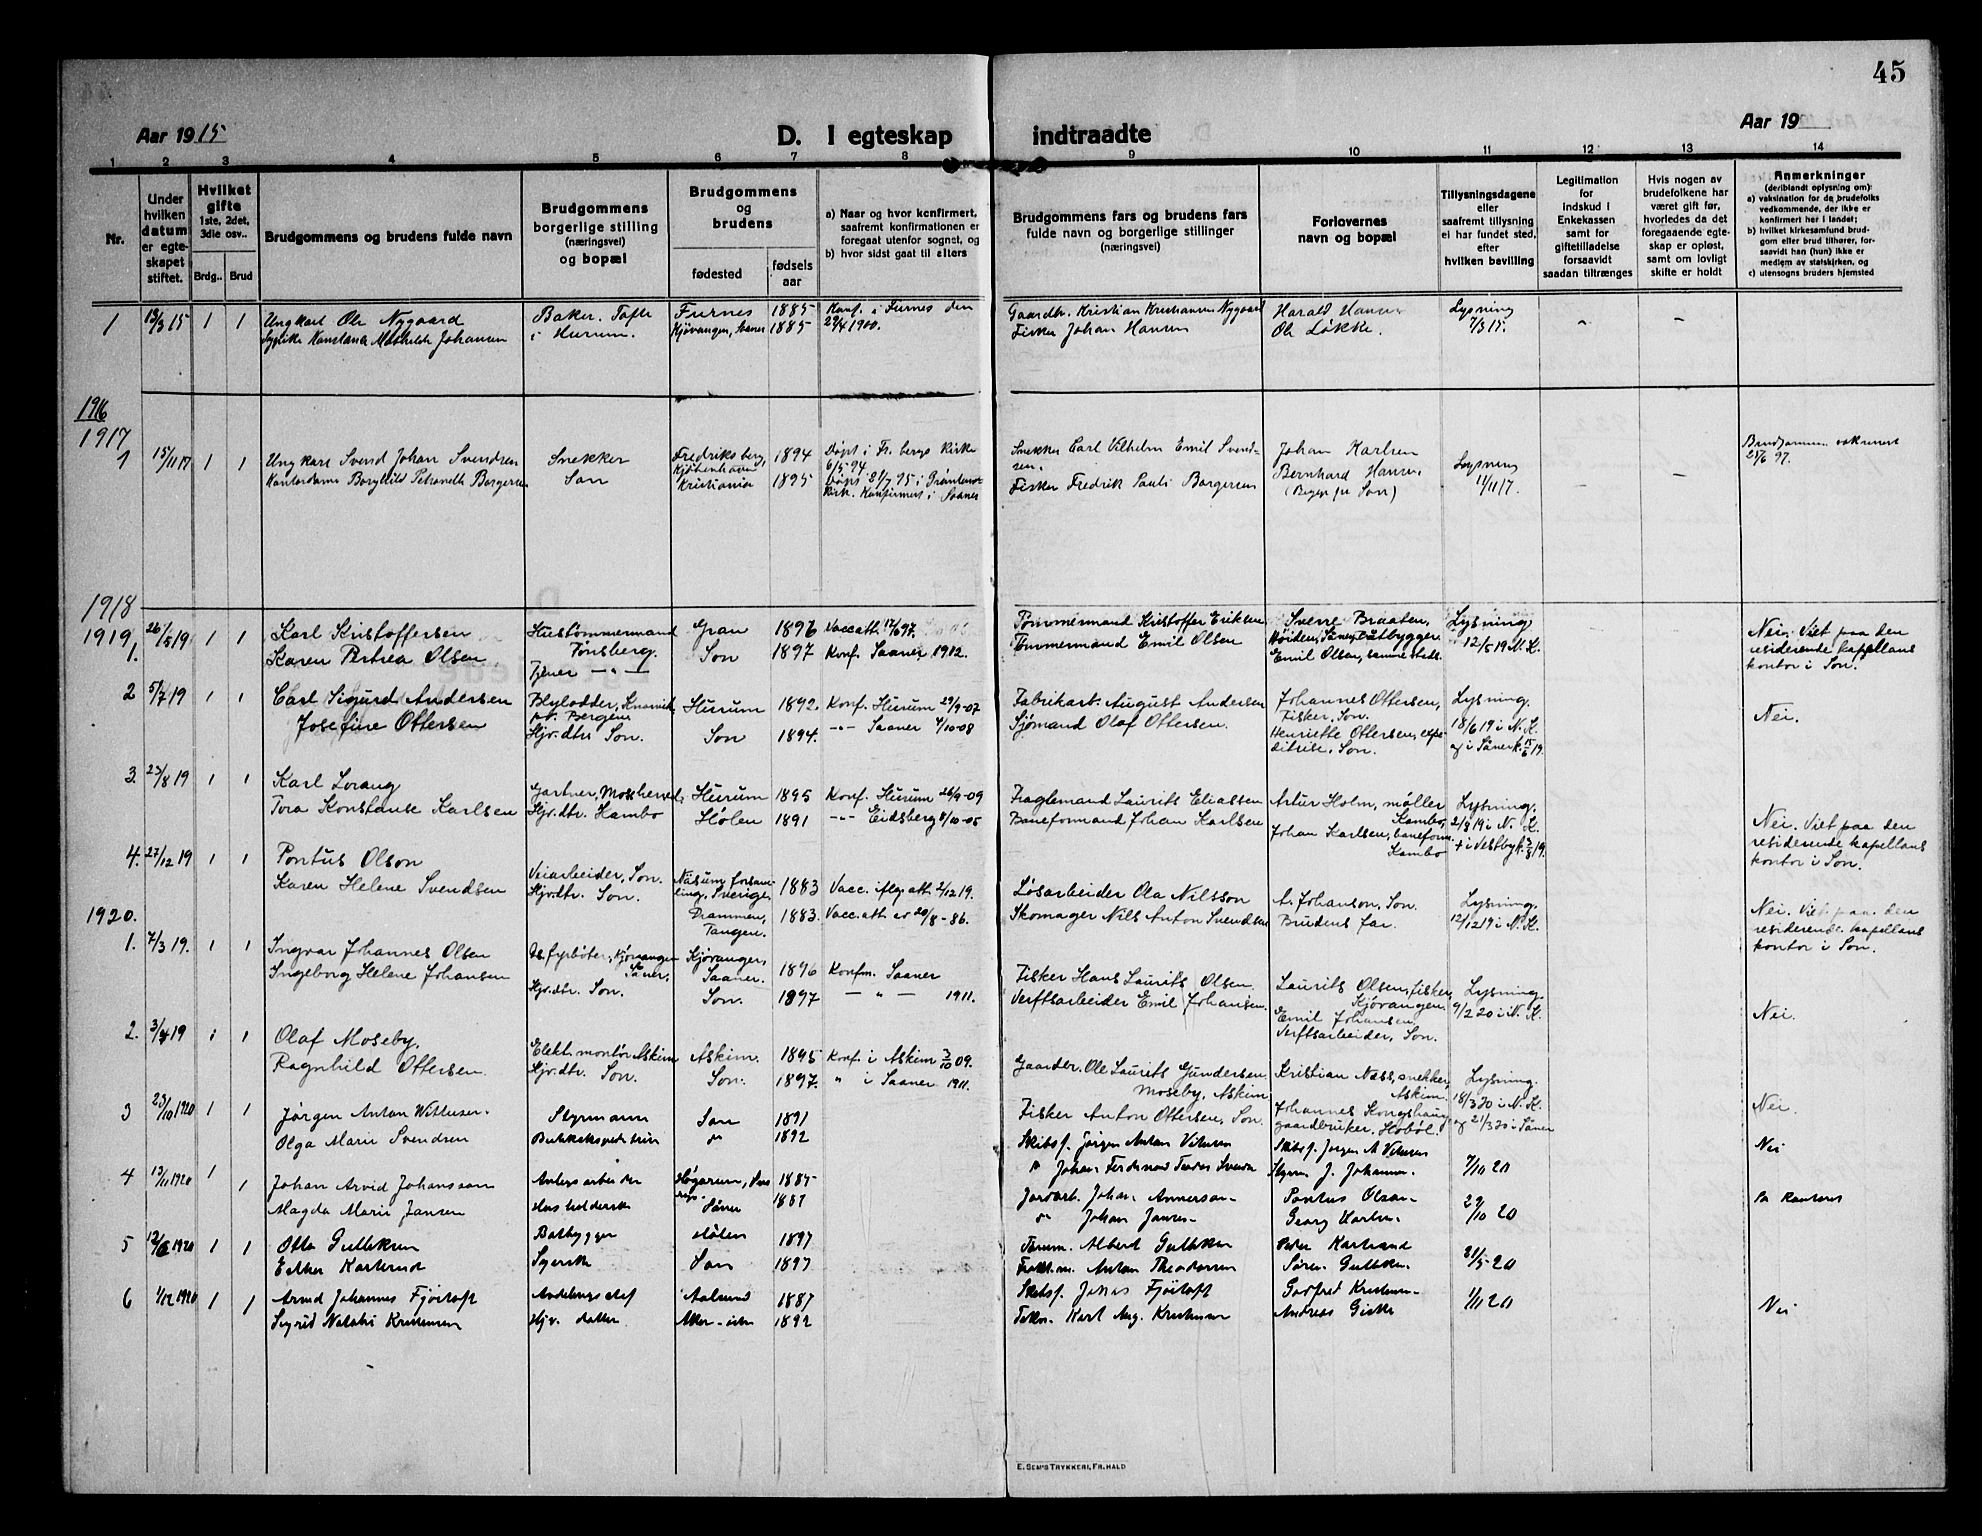 45
Aar 1915
D. I egteskap indtraadte
Aar 19
1 2 3 4 5 6 7 8 9 10 11 12 13 14
Nr.
Under hvilken datum er egteskapet stiftet.
Hvilket gifte 1ste, 2det, 3die osv..
Brdg.. Brud
Brudgommens og brudens fulde navn
Brudgommens borgerlige stilling (næringsvei) og bopæl
Brudgommens og brudens
fødested
fødsels aar
a) Naar og hvor konfirmert, saafremt konfirmationen er foregaat utenfor sognet, og
b) hvor sidst gaat til alters
Brudgommens fars og brudens fars fulde navn og borgerlige stillinger (næringsvei)
Forlovernes navn og bopæl
Tillysningsdagene eller saafremt tillysning ei har fundet sted, efter hvilken bevilling
Legitimation for indskud i Enkekassen samt for giftetilladelse forsaavidt saadan tiltrænges
Hvis nogen av brudefolkene har været gift før, hvorledes da det foregaaende egteskap er opløst, samt om lovligt skifte er holdt
Anmerkninger (deriblandt oplysning om)
a) vaksination for de brudefolks vedkommende, der ikke er konfirmert her i landet;
b) hvilket kirkesamfund brudgom eller brud tilhører, forsaavidt han (hun) ikke er medlem av statskirken, og
c) utensogns bruders hjemsted
1 13/3 15 1 1 Ungkarl Ole Nygaard Baker. Tofte Furnes 1885 Konf. i Furnes den Gaardbr. Kristian Kristiansen Nygaard Harald Hansen Lysning - -
Sypike Konstance Mathilde Johansen i Hurum. Kjøvangen, Saaner 1885 29/4 1900. Fisker Johan Hansen Ole Løkke. 7/3 15.
1916
1917
1 15/11 17 1 1 Ungkarl Svend Johan Svendsen Snekker Fredriksberg, Kjøbenhavn 1894 Døpt i Fr. bergs Kirke 6/5 94 Snekker Carl Vilhelm Emil Svendsen. Johan Karlsen Lysning Brudgommen vaksinert
Kontordame Borghild Petrendte Borgersen Son Kristiania 1895 Døpt 21/7 95 i Grønlands Kirk. Konfirmert i Saaner Fisker Fredrik Pauli Borgersen Bernhard Hansen (Begge fr Son) 11/11 17. 25/6 97.
1918
1919
1. 26/5 19 1 1 Karl Kristoffersen Hustømmermand Tønsberg. Gran 1896 Vacc att. 17/6 97. Tømmermand Kristoffer Eriksen Sverre Braaten, Lysning. Nei. Viet paa den
Karen Petrea Olsen. Tjener —„— Son 1897 Konf. Saaner 1912. Tømmermand Emil Olsen Emil Olsen, sammesteds. 12/5 19 N. K. residerende kapellans kontor i Son.
2 5/7 19 1 1 Carl Sigurd Andersen Blylodder, pr. Bergen Hurum 1892. Konf. Hurum 29/9-07 Fabrikarb. August Andersen Johannes Ottersen, Fisker, Son. Lysning. Nei.
Josefine Ottersen Hjv.dtr Son. Son 1894. -„- Saaner 4/10-08 Sjømand Olaf Ottersen. Henriette Ottersen, expeditrise, Son. 18/6 19 i N. K. og i Saaner k. 15/6 19.
3. 23/8 19 1 1 Karl Lorang Gartner, Mosseherred, Hurum 1895 Konf. Hurum 26/9-09 Fraglemand Laurits Eliassen Artur Holm, møller Kambo, Lysning. Nei. Viet paa den
Tora Konstanse Karlsen Hjv.dtr. Kambo Hølen 1891 -„- Eidsberg 8/10-05 Baneformand Johan Karlsen Johan Karlsen, baneform. Kambo 2/8 19 i N. K. + i Vestby k. 3/8 19. residerende kapellans kontor i Son.
4. 27/12 19 1 1 Pontus Olson Veiarbeider, Son. Näsum forsamling, Sverige, 1883 Vacc. iflg. att. 2/12 19. Løsarbeider Ola Nilsson A. Johanson, Son. Lysning. Nei. Viet paa den
Karen Helene Svendsen Hjv.dtr. Son. Drammen, Tangen. 1883. Vacc. att av 20/8-86. Skomager Nils Anton Svendsen Brudens far. 12/12 19 i N. K. residerende kapellans kontor i Son.
1920.
1. 7/3 19. 1 1 Ingvar Johannes Olsen Ds. fyrbøter, Kjøvangen Saaner, Kjøvangen, Saaner. 1896 Konfm. Saaner Fisker Hans Laurits Olsen Laurits Olsen, fisker, Kjøvangen. Lysning. Nei.
Ingeborg Helene Johansen Hjv.dtr. Son. Son. 1897 — „ — 1911. Verftsarbeider Emil Johansen. Emil Johansen, Verftsarbeider, Son. 9/2 20 i N. K.
2. 3/4 19 1 1 Olaf Moseby. Elekt. montør Askim Askim. 1895 Konf. i Askim 3/10 09. Gaarder. Ole Laurits Gundersen Moseby, Askim Kristian Næss, snekker, Askim. Lysning. Nei.
Ragnhild Ottersen. Hjv.dtr. Son. Son. 1897. „ i Saaner 1911. Fisker Anton Ottersen, Son. Johannes Kongshaug gaardbruker, Hobøl. 18/3 20 i N. K. og 21/3 20 i Saaner
3 23/10 1920 1 1 Jørgen Anton Wittusen Styrmann Son 1891 Skibsf. Jørgen Anton Vitusen Skibsf. Jørgen A Vitusen 7/10 20 Nei
Olga Marie Svendsen Do 1892 Do Johan Ferdinand Styrm J. Johansen.
4 13/11 1920 1 1 Johan Arvid Johansson Anlegsarbeider 1885 Jordarb. Johan Annersson Pontus Olson 29/10 20
Magda Marie Jansen Husholderske Saaner 1881 Do Johan Jansen Georg Karlsen.
5 1920 1 1 Otto Gulliksen Baatbygger Hølen 1897 Tømm. Albert Gulliksen Peder 31/5-20
Esther Syerske Son 1897 Anton Theodorsen Søren Gulliksen.
6 1/12 1920 1 1 Arvid Johannes Fjørtoft Aalesund 1887 Skibsf. Jonas Fjørtoft Godfred Kristensen 1/11 20 Nei
Sigrid Natalie Kristensen Hjv. datter Aker 1892 Karl Aug. Kristensen Andreas Giske
E. SEM'S TRYKKERI, FR.HALD